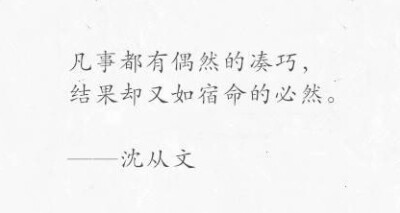 凡事都有偶然的凑巧，
结果却又如宿命的必然。
——沈从文